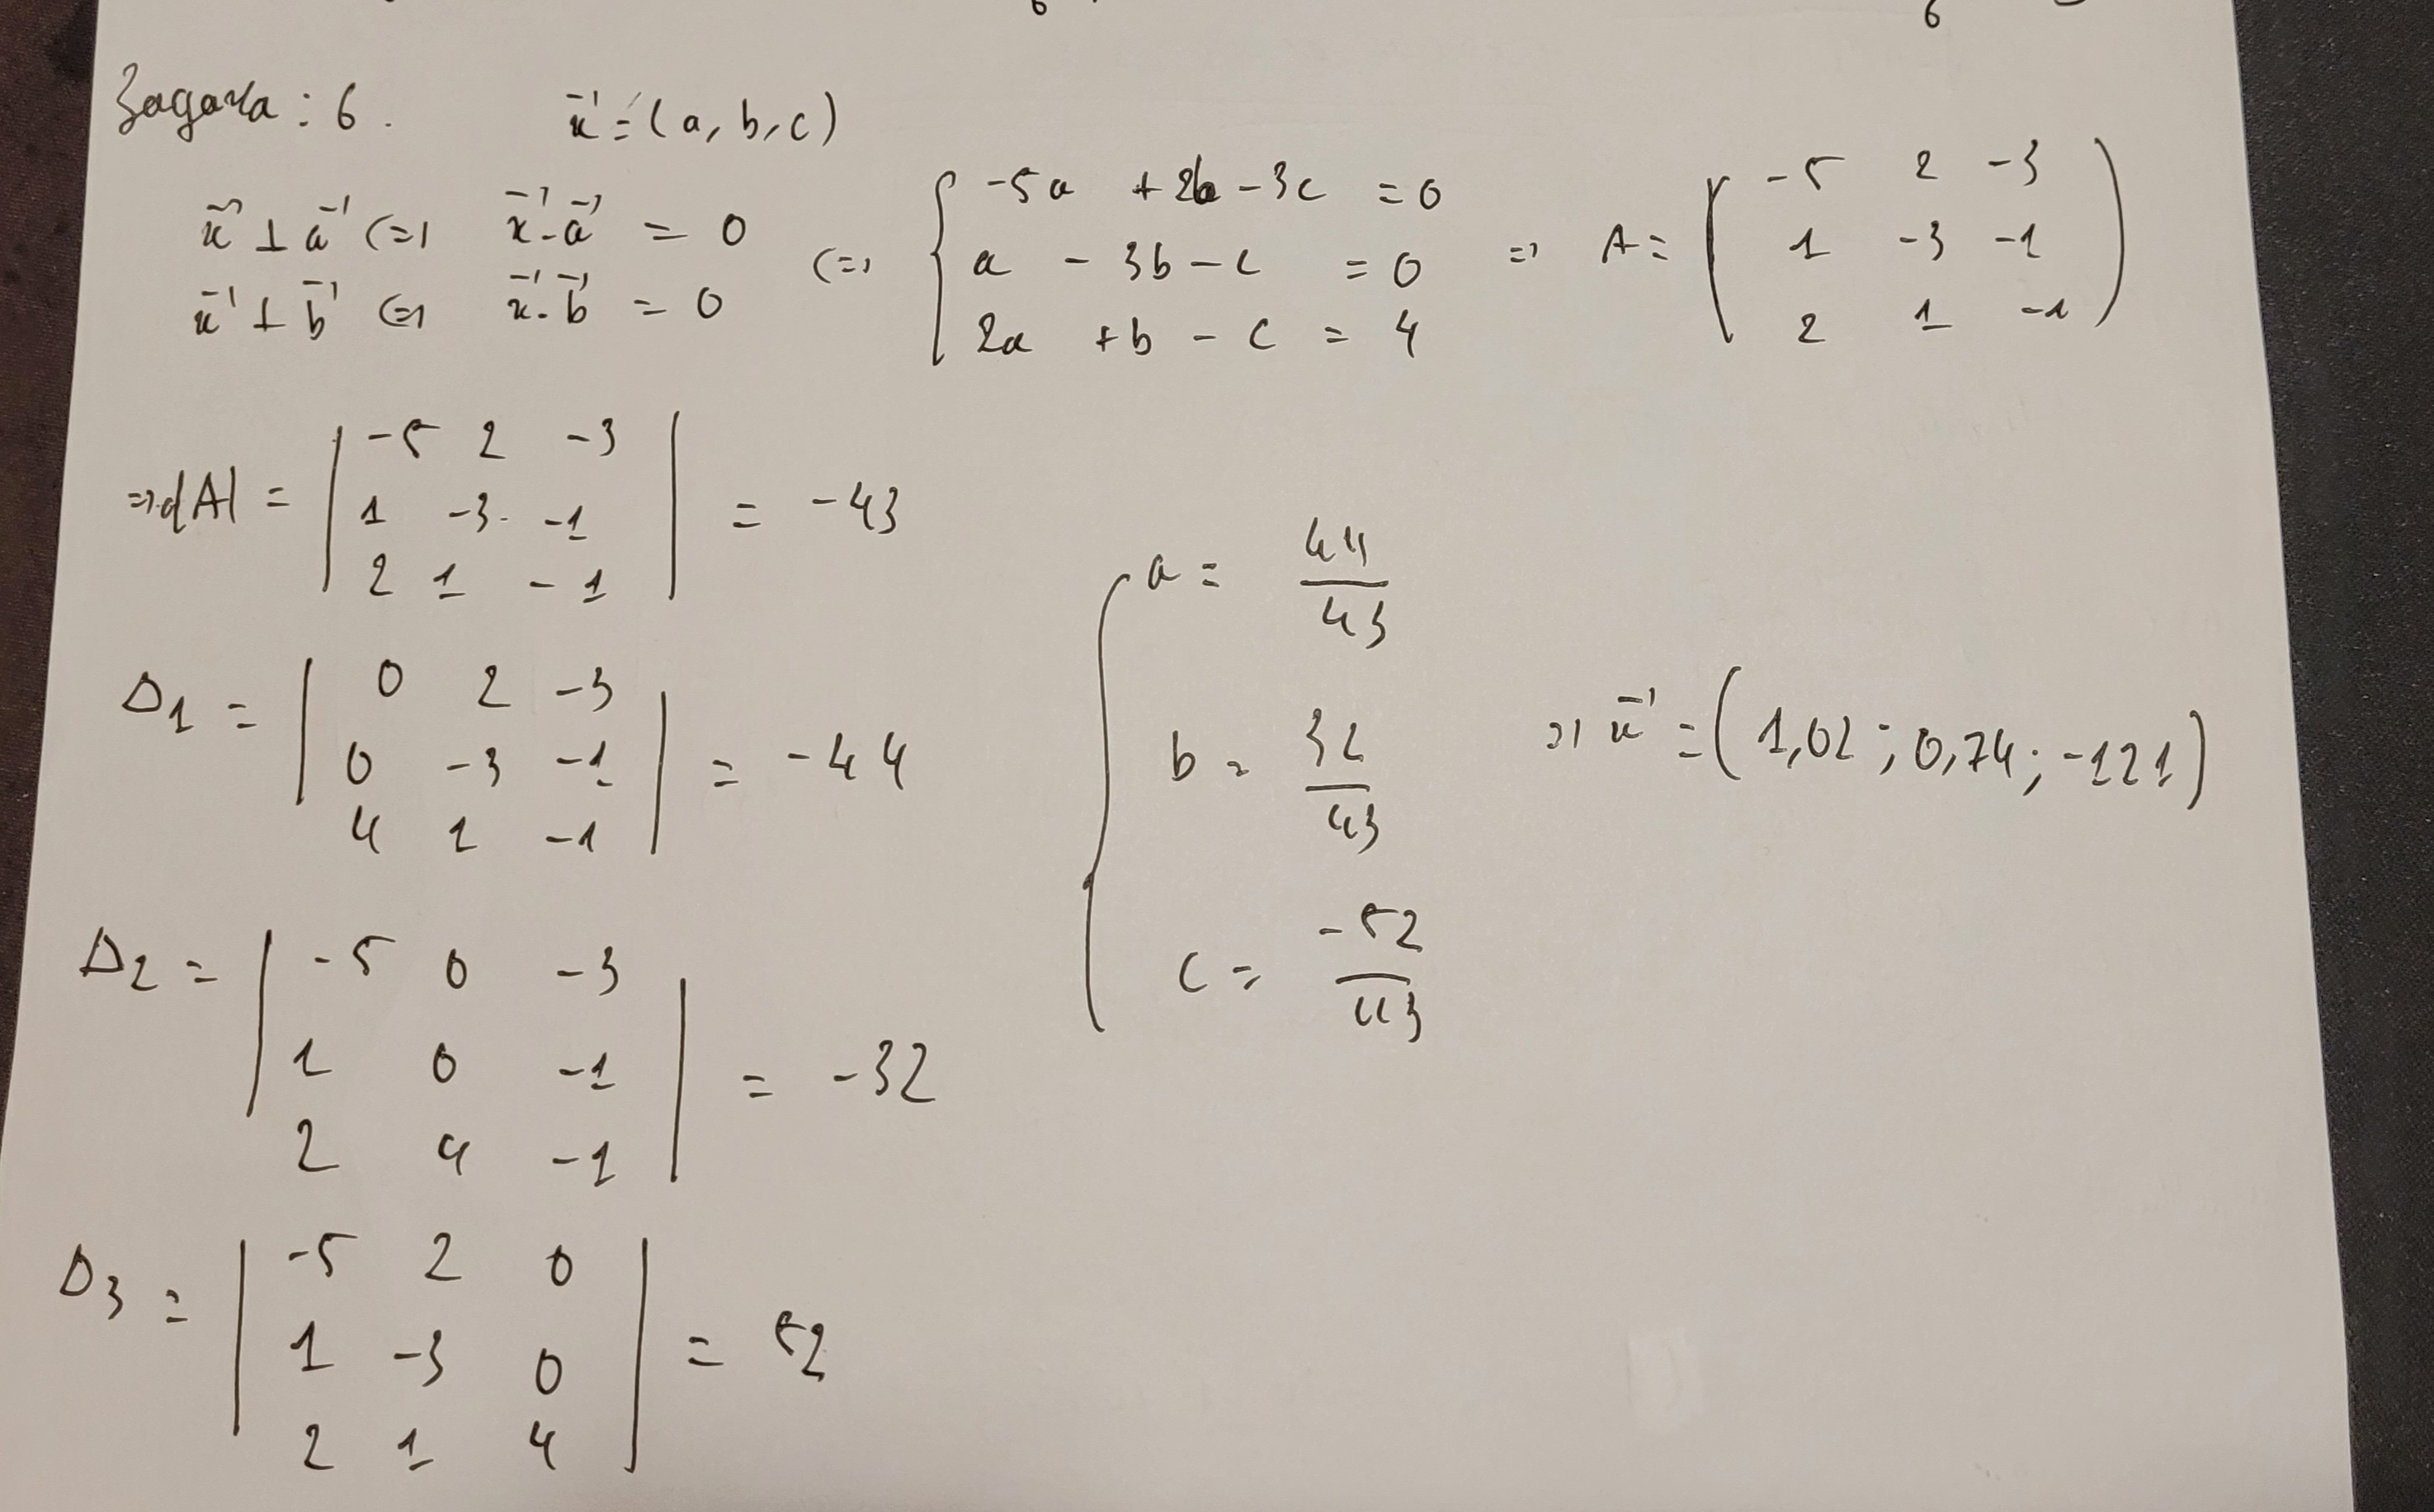 6 6
Задача: 6. x⃗ = (a, b, c)
x⃗ ⊥ a⃗ <=> x⃗ . a⃗ = 0
x⃗ ⊥ b⃗ <=> x⃗ . b⃗ = 0
<=> { -5a + 2b - 3c = 0
a - 3b - c = 0
2a + b - c = 4
=> A = ( -5 2 -3
1 -3 -1
2 1 -1 )
=> |A| = | -5 2 -3
1 -3 -1
2 1 -1 | = -43
Δ1 = | 0 2 -3
0 -3 -1
4 1 -1 | = -44
Δ2 = | -5 0 -3
1 0 -1
2 4 -1 | = -32
Δ3 = | -5 2 0
1 -3 0
2 1 4 | = 52
{ a = 44/43
b = 32/43
c = -52/43
=> x⃗ = (1,02 ; 0,74 ; -121)